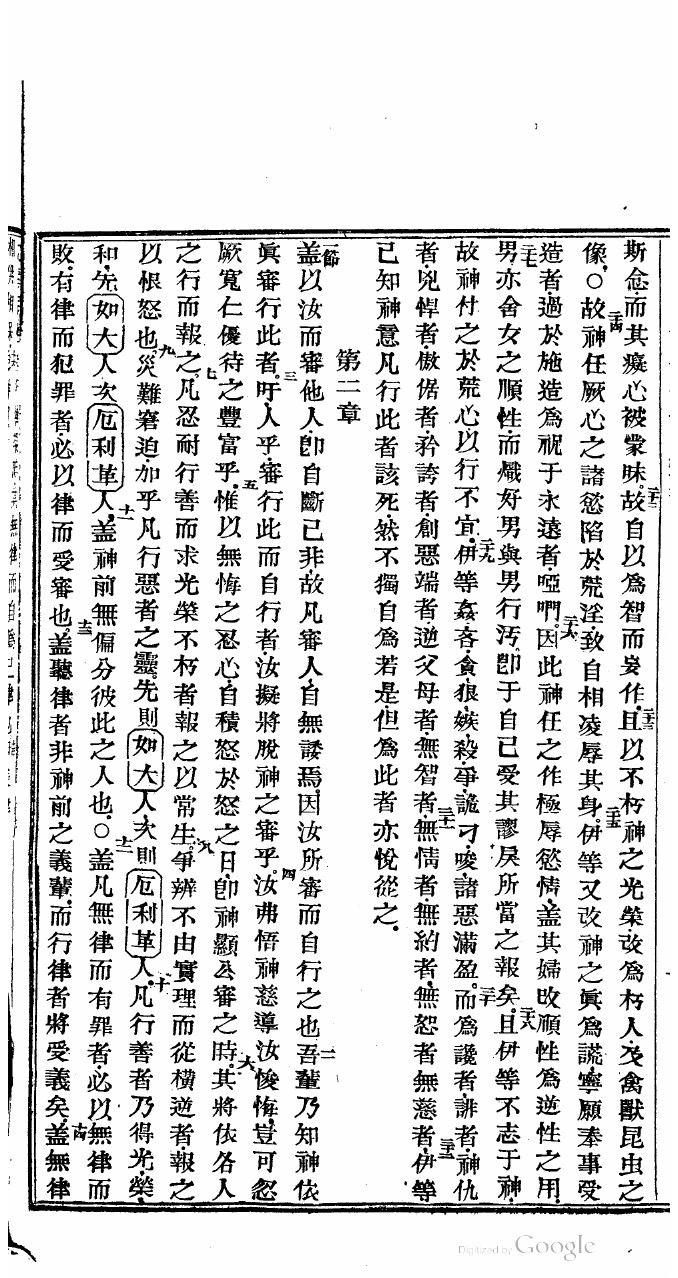 斯念而其癡心被䝉昧。故自以爲智而妄作。且以不朽神之光榮改爲朽人及禽獸昆虫之
像。〇故神任厥心之諸慾陷於荒淫致自相凌辱其身。伊等又改神之眞爲謊寧願奉事受
造者過於施造爲祝于永遠者啞們。因此神任之作極辱慾情。盖其婦改順性爲逆性之用
男亦舍女之順性而熾好男與男行汚。卽于自己受其謬戾所當之報矣。且伊等不志于神
故神付之於荒心以行不宜。伊等姦吝貪狠嫉殺爭詭刁唆諸惡滿盈。而爲讒者誹者神仇
者兇悍者傲倨者矜誇者創惡端者逆父母者無智者無情者無約者無恕者無慈者伊等
已知神意凡行此者該死然不獨自爲若是但爲此者亦悅從之。
第二章
一節盖以汝而審他人卽自斷己非。故凡審人自無諉焉因汝所審而自行之也吾輩乃知神依
眞審行此者。吁人乎審行此而自行者汝擬將脫神之審乎。汝弗悟神慈導汝悛悔豈可忽
厥寬仁優待之豐富乎。惟以無悔之忍心自積怒於怒之日卽神顯公審之時。其將依各人
之行而報之。凡忍耐行善而求光榮不朽者報之以常生。爭辨不由實理而從橫逆者報之
以恨怒也。災難窘迫加乎凡行惡者之靈。先則如大人次則厄利革人。凡行善者乃得光榮
和。先如大人次厄利革人。盖神前無偏分彼此之人也。〇盖凡無律而有罪者必以無律而
敗有律而犯罪者必以律而受審也。盖聽律者非神前之義輩而行律者將受義矣。盖無律
Digitized by Google